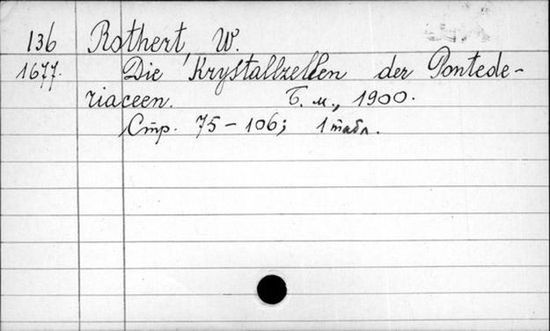 136 Rothert, W.
1677. Die Krystallzellen der Pontede-
riaceen. Б. м., 1900.
Стр. 75-106; 1 табл.